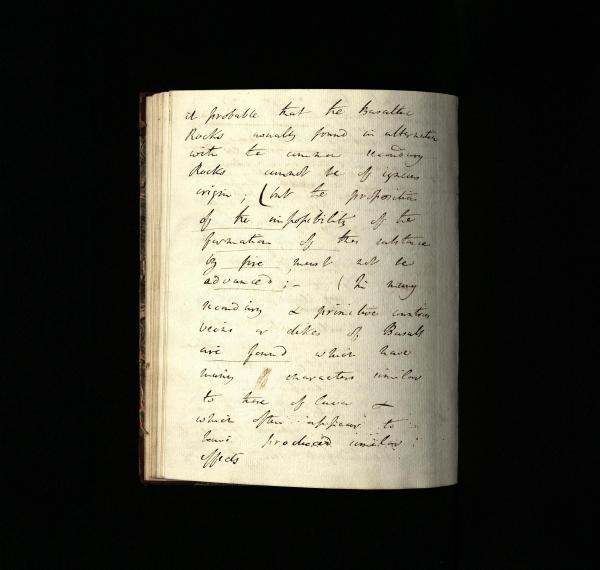 it probable that the Basaltic
Rocks usually found in alternation
with the common secondary
Rocks cannot be of igneous
origin; (but the proposition
of the impossibility of the
formation of this substance
by fire must not be
advanced;- (In many
secondary & primitive countries
veins or dikes of Basalt
are found which have
many characters similar
to those of lava &
which often appear to
have produced similar
effects